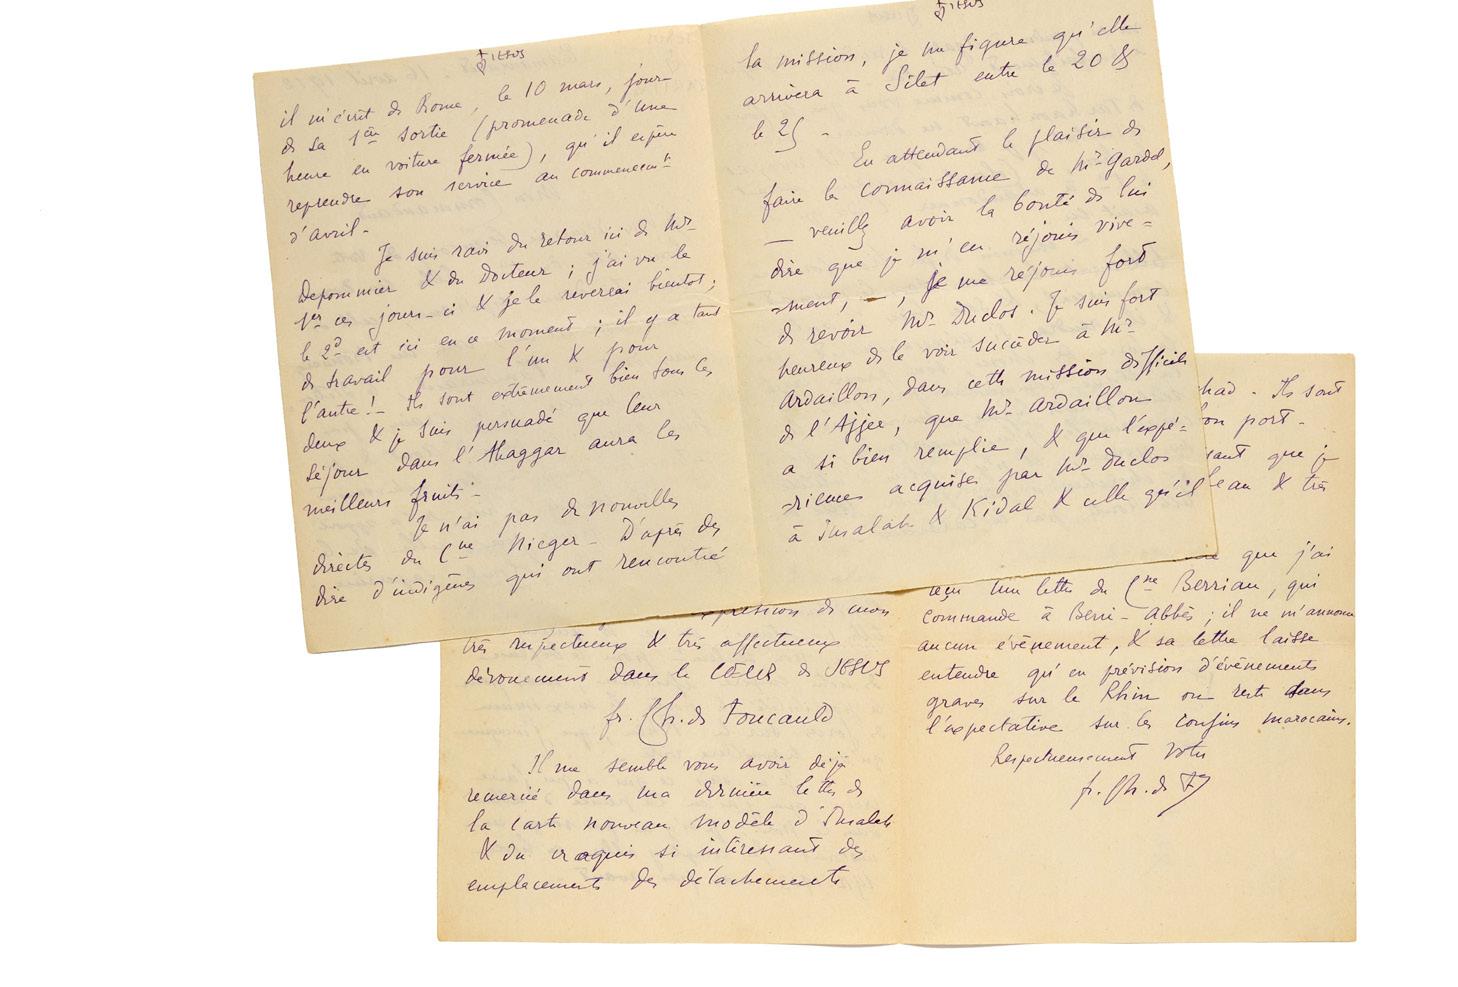 JESUS
il m'écrit de Rome, le 10 mars, jour
de sa 1ère sortie (promenade d'une
heure en voiture fermée), qu'il espère
reprendre son service au commencemt
d'avril.
Je suis ravi du retour ici de Mr
Depommier & du Docteur ; j'ai vu le
1er ces jours-ci & je le reverrai bientôt ;
le 2d est ici en ce moment ; il y a tant
de travail pour l'un & pour
l'autre ! _ Ils sont extrêmement bien tous les
deux & je suis persuadé que leur
séjour dans l'Ahaggar aura les
meilleurs fruits _
Je n'ai pas de nouvelles
directes du Cne Nieger _ D'après des
dire d'indigènes qui ont rencontré
JESUS
la mission, je me figure qu'elle
arrivera à Silet entre le 20 &
le 25 _
En attendant le plaisir de
faire la connaissance de Mr Gardel,
_ veuillez avoir la bonté de lui
dire que je m'en réjouis vive=
=ment, _ , je me réjouis fort
de revoir Mr Duclos. Je suis fort
heureux de le voir succéder à Mr
Ardaillon, dans cette mission difficile
de l'Ajjer, que Mr Ardaillon
a si bien remplie, & que l'expé=
=rience acquise par Mr Duclos
à Insalah & Kidal & celle qu'il
expression de mon
très respectueux & très affectueux
dévouement dans le CŒUR de JESUS
fr. Ch. de Foucauld
Il me semble vous avoir déjà
remercié dans ma dernière lettre de
la carte nouveau modèle d'Insalah
& du croquis si intéressant des
emplacements des détachements
Ils sont
bon port _
que je
& très
que j'ai
reçu une lettre du Cne Berriau, qui
commande à Beni-Abbès ; il ne m'annonce
aucun évènement, & sa lettre laisse
entendre qu'en prévision d'évènements
graves sur le Rhin on reste dans
l'expectative sur les confins marocains.
Respectueusement votre
fr. Ch. de F